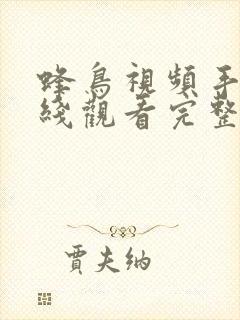 蜂鳥視頻手
綫觀看完整
賈夫納